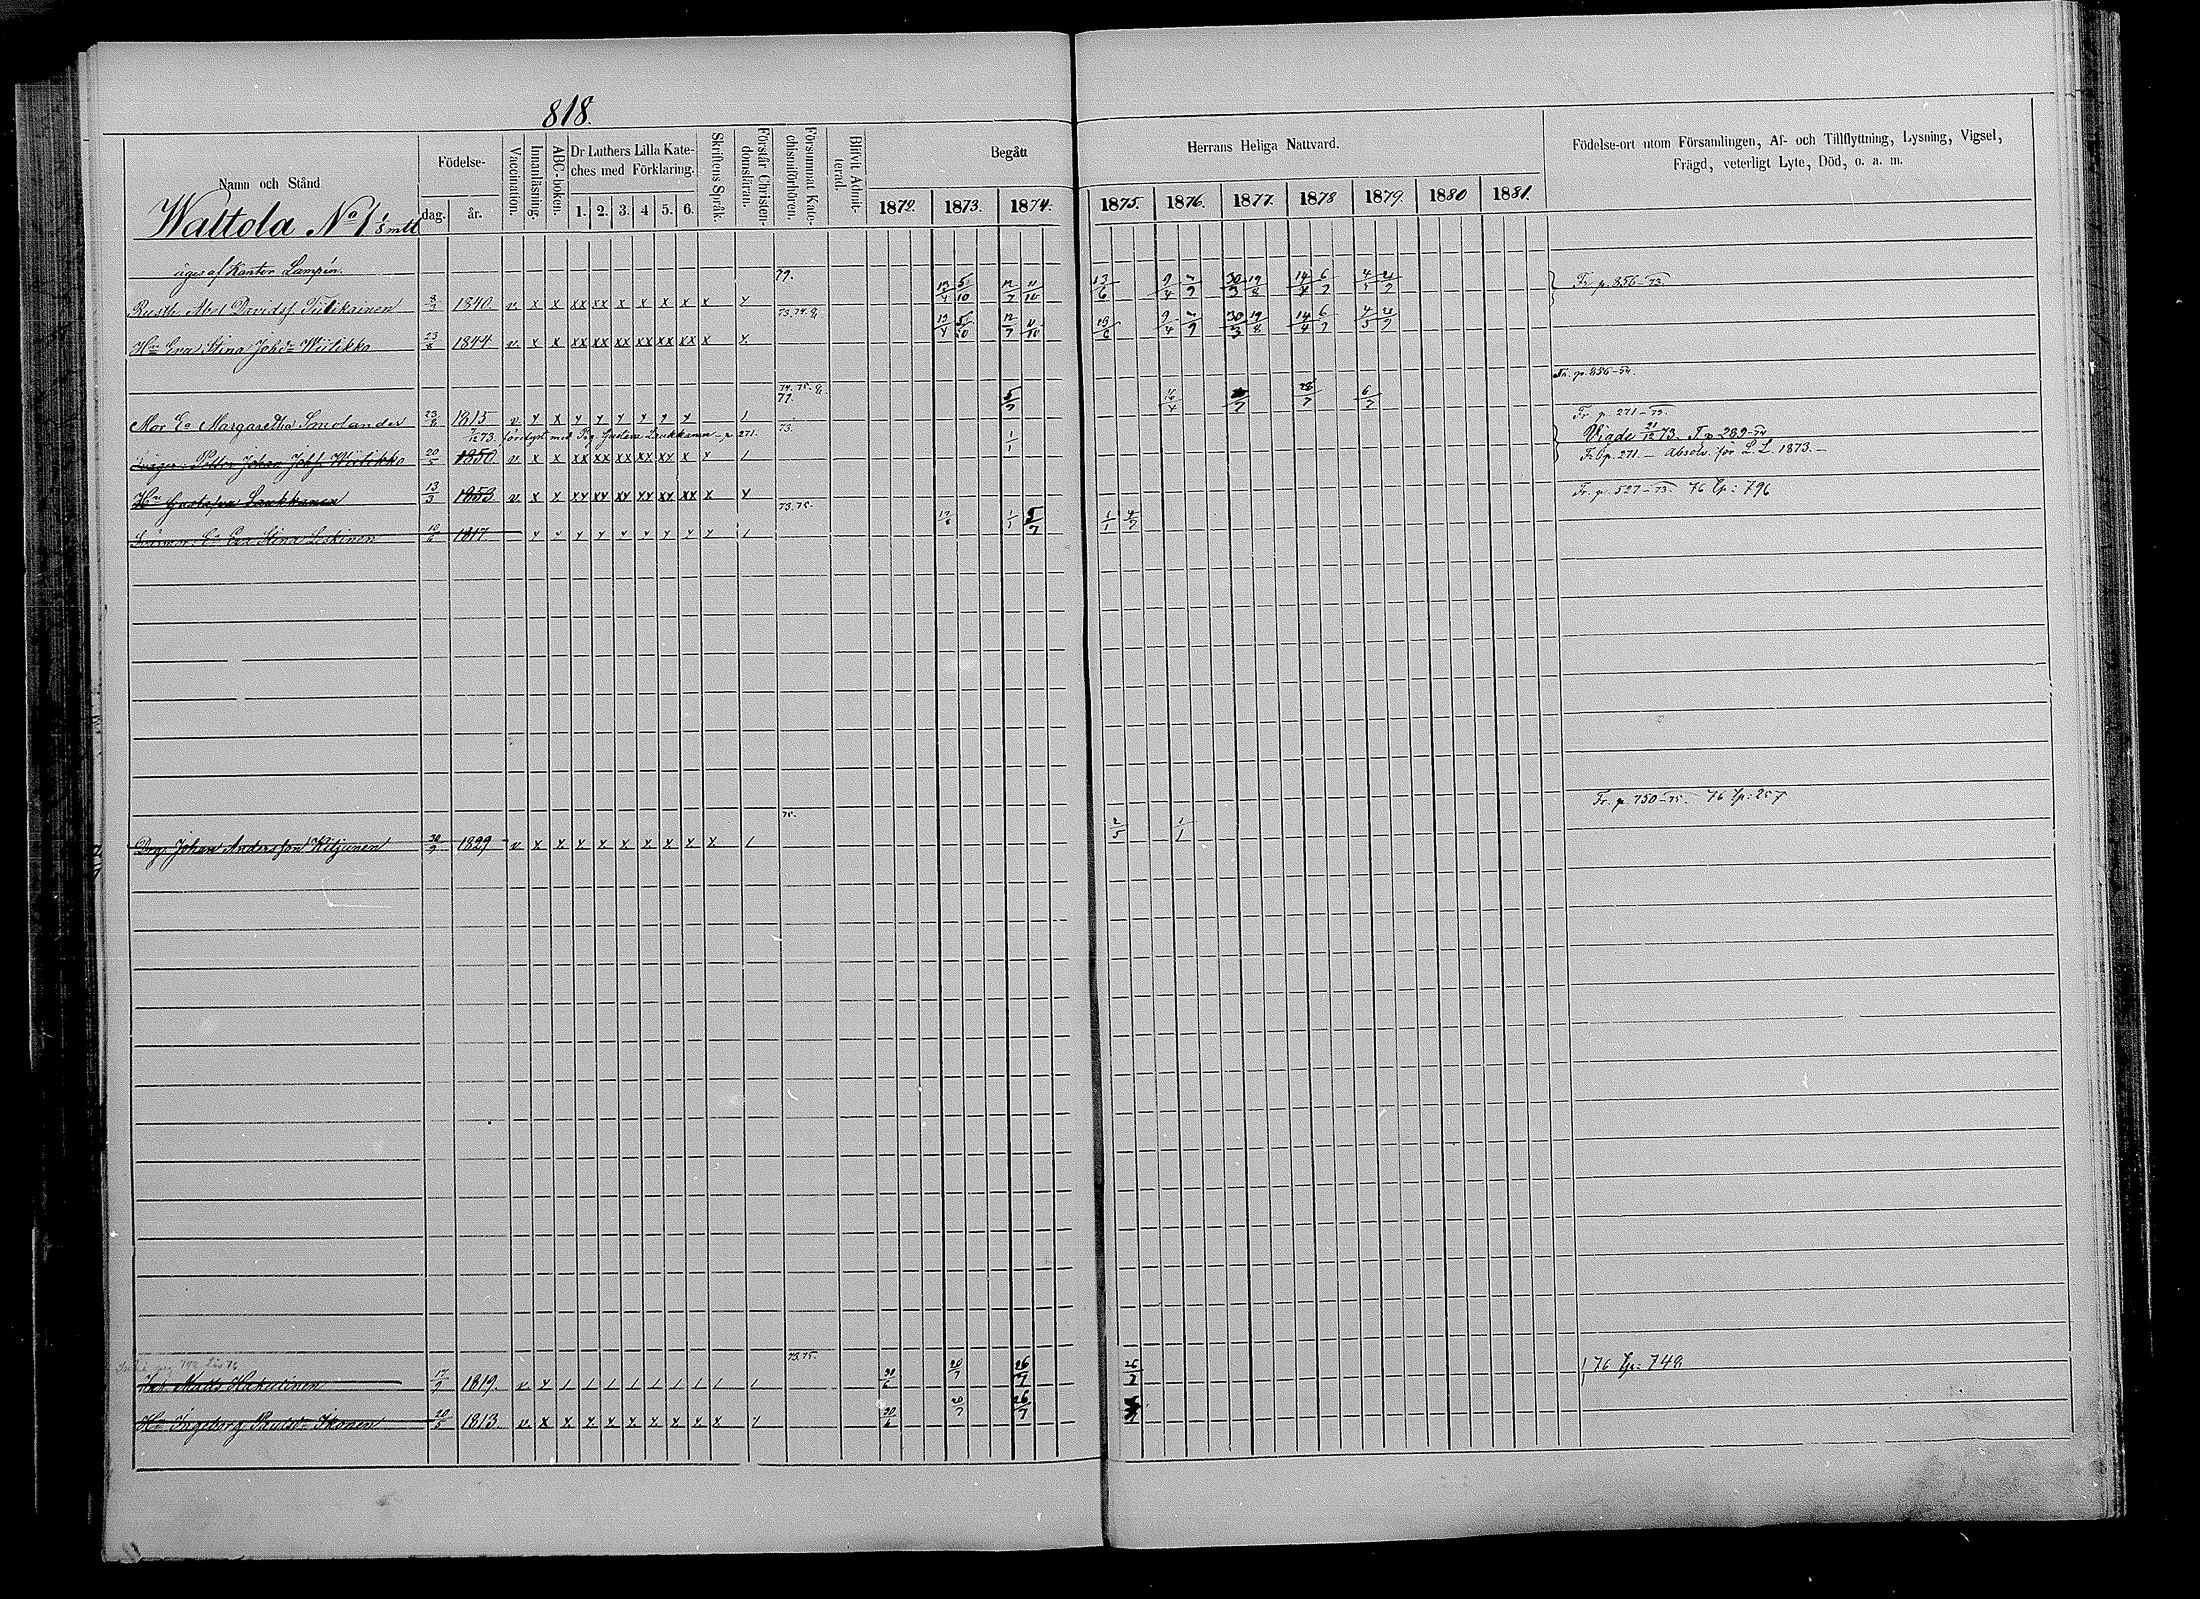 818.
Namn och Stånd
Födelse-
dag. år.
Vaccination.
Innanläsning.
ABC-boken.
Dr Luthers Lilla Kate-
ches med Förklaring.
1. 2. 3. 4 5. 6.
Skriftens Språk.
Förstår Christen-
domsläran.
Försummat Kate-
chismiförhören.
Blifvit Admit-
terad.
Begått
Herrans Heliga Nattvard.
1872. 1873. 1874. 1875. 1876. 1877. 1878 1879. 1880 1881.
Födelse-ort utom Församlingen, Af- och Tillflyttning, Lysning, Vigsel,
Frägd, veterligt Lyte, Död, o. a. m.
Wattola No 1
äges af Kantor Lampén. 79.
Rusth. Abel Davidsf Tiilikainen 8/3 1840 v x x xx xx x x x x x x 13/4 5/10 12/7 11/10 13/6 30/3 19/8 14/4 6/7 4/5 21/7 Fr. p. 856-73.
Hu Eva Stina Johdr Wiilikko 23/8 1844 v x x xx xx xx xx xx xx x x 13/4 5/10 12/7 11/10 13/6 30/3 19/8 14/4 6/7 4/5 21/7
77. Fr. p. 856-
Mor Ea Margaretha Smolander 23/8 1815 v x x x x x x x x 1 5/7 16/4 6/7 Fr. p. 271-73.
7/12 73. förelyst med Pig. Gustava Laukkanen - p 271. 73. Vigde 21/12 73. T p 289-74
Johan Johsf Wiilikko 20/5 1850 v x x xx xx xx xx xx x x 1 1/1 Fr p. 271. - Absolv. för L. L. 1873. -
Hu Gustafva Laukkanen 13/3 1853 v x x xx xx xx xx xx xx x x Fr. p. 527-73. 76 Tp: 796
73.75.
Ea Eva Stina Leskinen 10/6 1817 x x x x x x x x x 1 1/1 5/7 1/1 4/7
75. Fr. p. 750-75. 76 Tp: 257
Drg. Johan Andersson Kiljunen 1829 v x x x x x x x x x 1 2/5 1/1
73.75.
Matts Hakulinen 17/9 1819. v x 1 1 1 1 1 1 1 1 1 30/6 20/7 26/7 76 Tp: 748
Hu Ingeborg Paulsdr Ikonen 20/5 1813. v x x x x x x x x x x 30/6 20/7 26/7